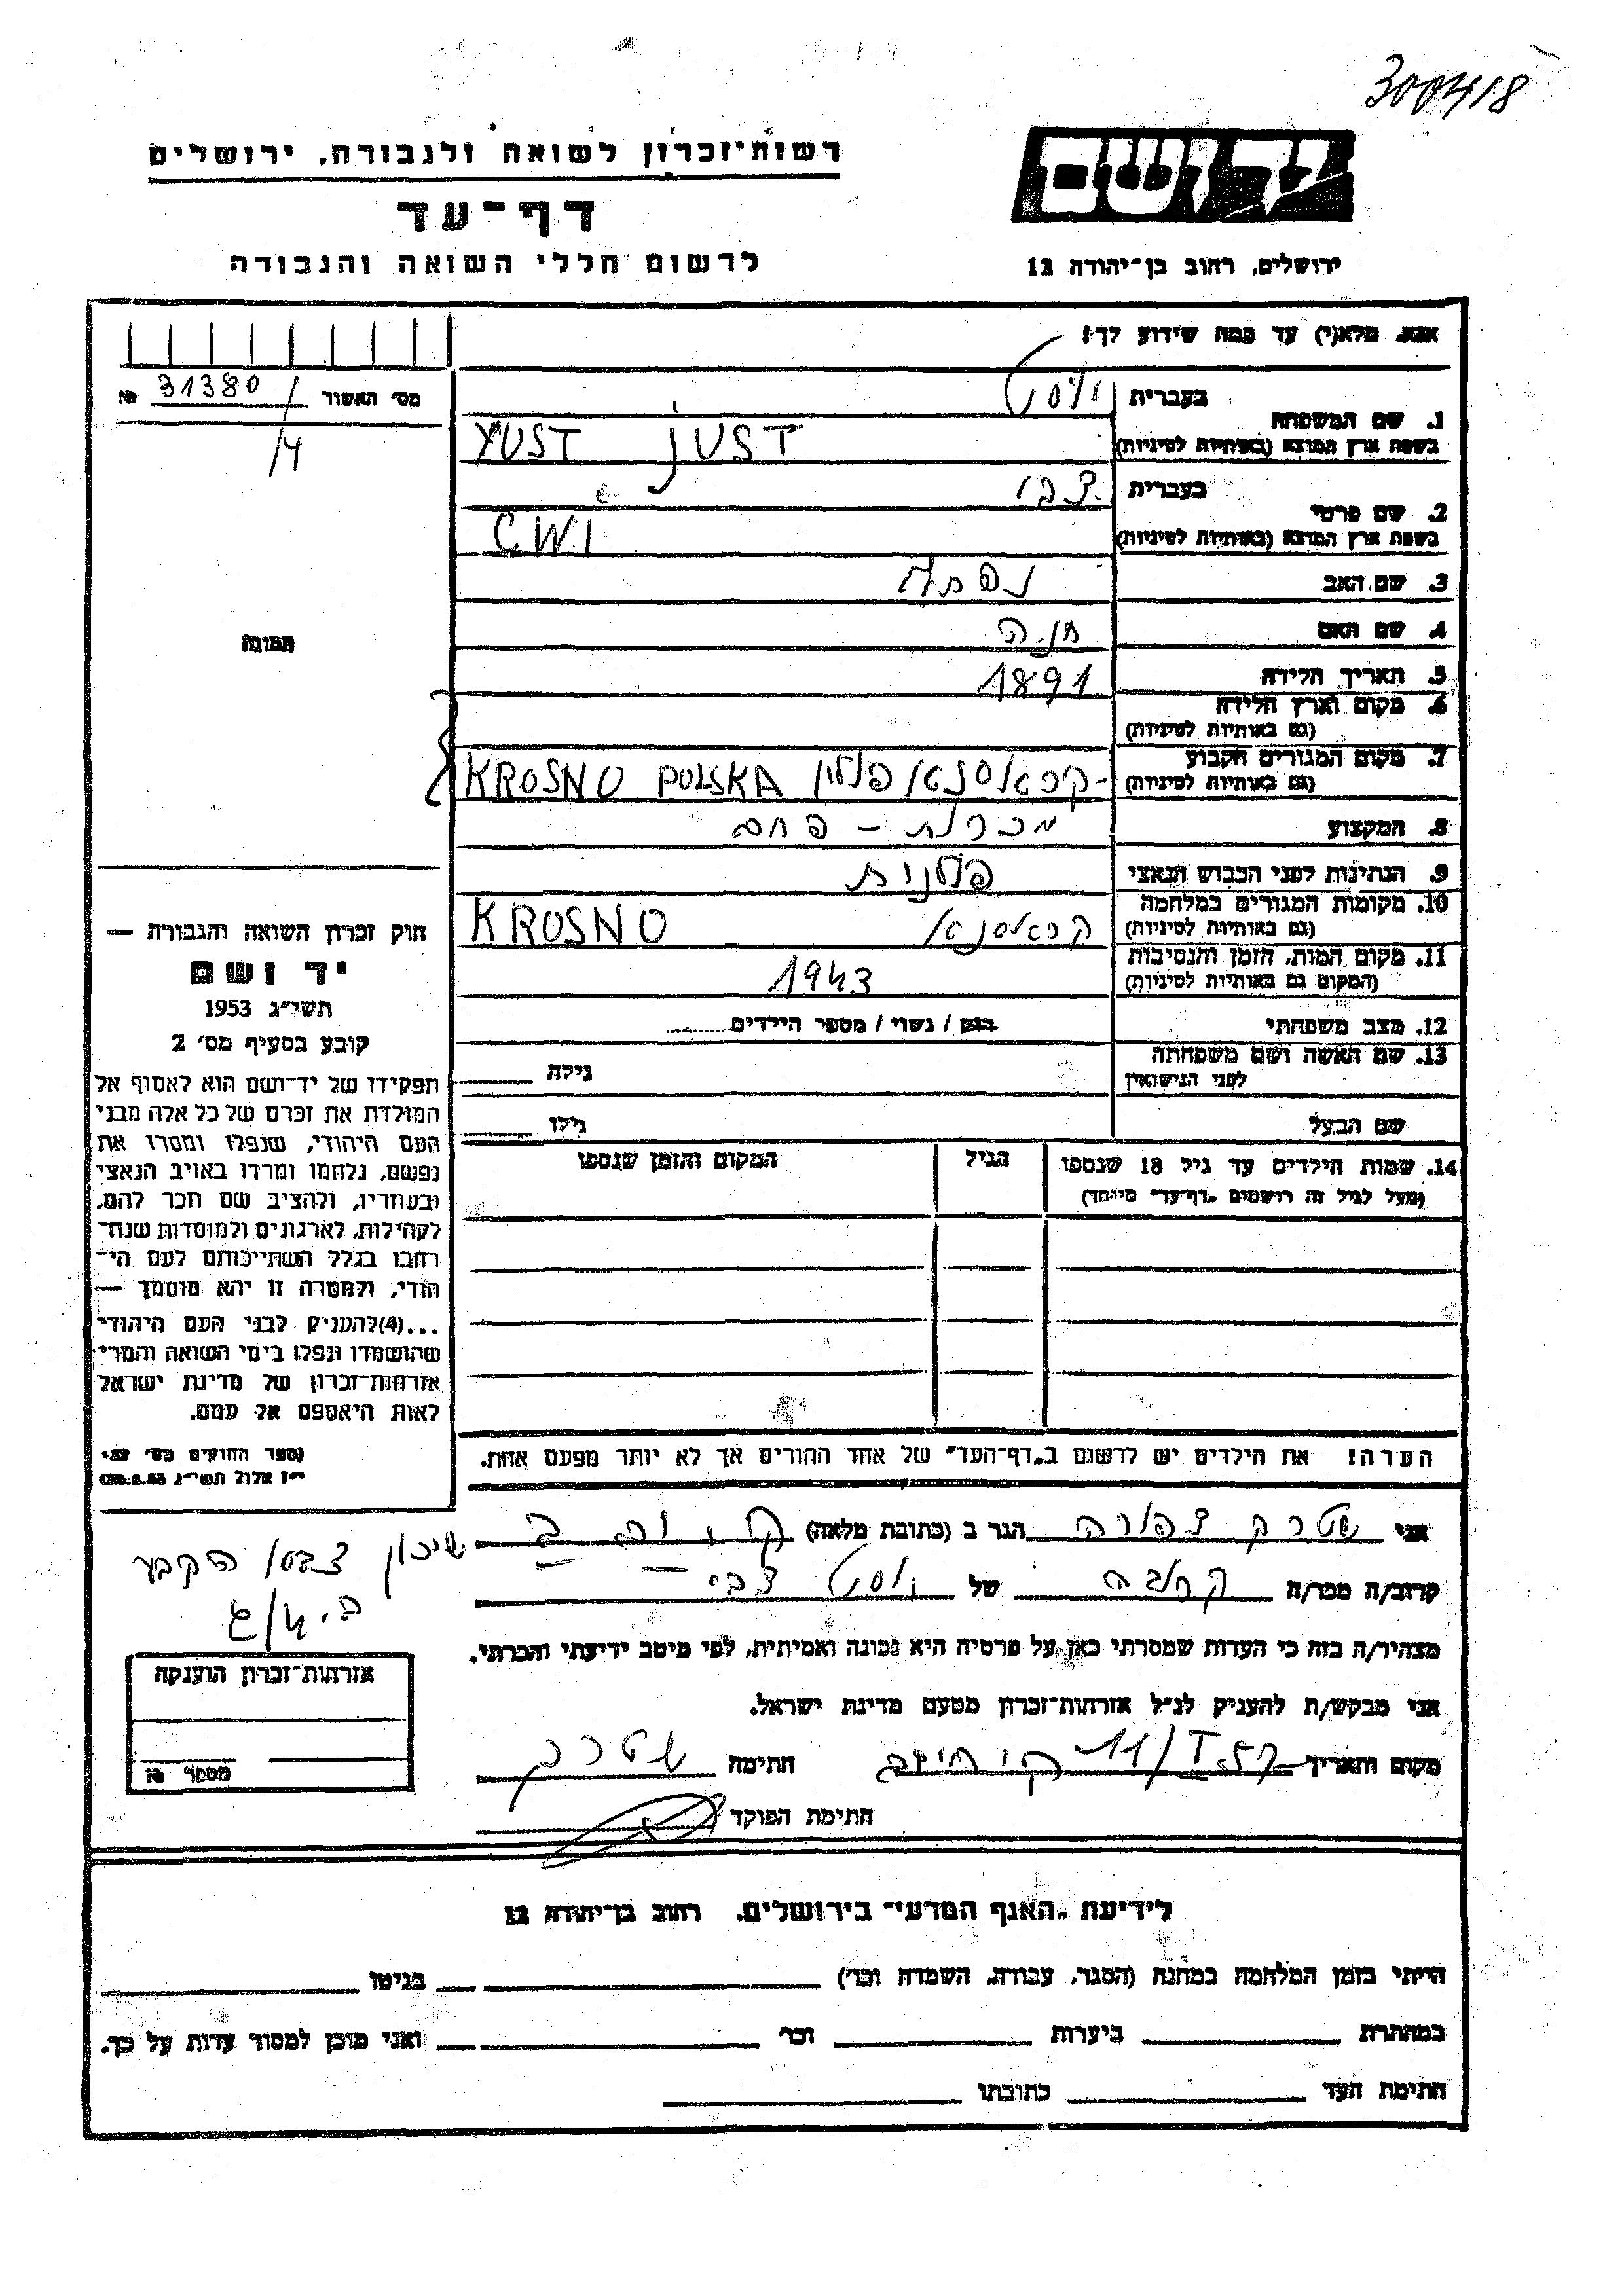 300418
רשות־זכרון לשואה ולגבורה, ירושלים
יד ושם
דף־עד
לרשום חללי השואה והגבורה
ירושלים, רחוב בן־יהודה 12
אנא, מלא(י) עד כמה שידוע לך!
מס׳ האשור 31380 №
/4
1. שם המשפחה
בעברית יוסט
בשפת ארץ המוצא (באותיות לטיניות) YUST JUST
2. שם פרטי
בעברית צבי
בשפת ארץ המוצא (באותיות לטיניות) CWI
3. שם האב נפתלי
4. שם האם חנה
תמונה
5. תאריך הלידה 1891
6. מקום וארץ הלידה
(גם באותיות לטיניות)
7. מקום המגורים הקבוע
(גם באותיות לטיניות) פולין KROSNO POLSKA
8. המקצוע פחם
9. הנתינות לפני הכבוש הנאצי פולנית
10. מקומות המגורים במלחמה
(גם באותיות לטיניות) KROSNO
11. מקום המות, הזמן והנסיבות
(המקום גם באותיות לטיניות) 1943
12. מצב משפחתי רווק / נשוי / מספר הילדים
13. שם האשה ושם משפחתה
לפני הנישואין גילה
שם הבעל גילו
14. שמות הילדים עד גיל 18 שנספו הגיל המקום והזמן שנספו
(מעל לגיל זה רושמים „דף־עד״ מיוחד)
הערה! את הילדים יש לרשום ב„דף־העד״ של אחד ההורים אך לא יותר מפעם אחת.
חוק זכרון השואה והגבורה —
יד ושם
תשי״ג 1953
קובע בסעיף מס׳ 2
תפקידו של יד־ושם הוא לאסוף אל
המולדת את זכרם של כל אלה מבני
העם היהודי, שנפלו ומסרו את
נפשם, נלחמו ומרדו באויב הנאצי
ובעוזריו, ולהציב שם וזכר להם,
לקהילות, לארגונים ולמוסדות שנח־
רבו בגלל השתייכותם לעם הי־
הודי, ולמטרה זו יהא מוסמך —
...(4)להעניק לבני העם היהודי
שהושמדו ונפלו בימי השואה והמרי
אזרחות־זכרון של מדינת ישראל
לאות היאספם אל עמם.
(ספר החוקים מס׳ 132
י״ז אלול תשי״ג 28.8.53)
אני שטרק צפורה הגר ב (כתובת מלאה)
שיכון צבא הקבע
קרוב/ה מכר/ה קרובה של יוסט צבי
מצהיר/ה בזה כי העדות שמסרתי כאן על פרטיה היא נכונה ואמיתית, לפי מיטב ידיעתי והכרתי.
אני מבקש/ת להעניק לנ״ל אזרחות־זכרון מטעם מדינת ישראל.
מקום ותאריך 11/I 57 חתימה שטרק
חתימת הפוקד
אזרחות־זכרון הוענקה
מספר №
לידיעת „האגף המדעי״ בירושלים, רחוב בן־יהודה 12
הייתי בזמן המלחמה במחנה (הסגר, עבודה, השמדה וכו׳) בגיטו
במחתרת ביערות וכו׳ ואני מוכן למסור עדות על כך.
חתימת העד כתובתו